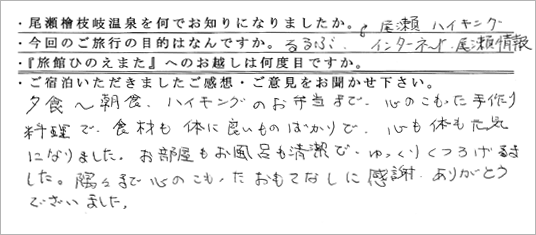 ・尾瀬檜枝岐温泉を何でお知りになりましたか。 尾瀬ハイキング
・今回のご旅行の目的はなんですか。るるぶ、インターネット、尾瀬情報
・『旅館ひのえまた』へのお越しは何度目ですか。
・ご宿泊いただきましたご感想・ご意見をお聞かせ下さい。
夕食～朝食、ハイキングのお弁当まで、心のこもった手作り
料理で、食材も体に良いものばかりで、心も体も元気
になりました。お部屋もお風呂も清潔で、ゆっくりくつろげま
した。隅々まで心のこもったおもてなしに感謝、ありがとう
ございました。